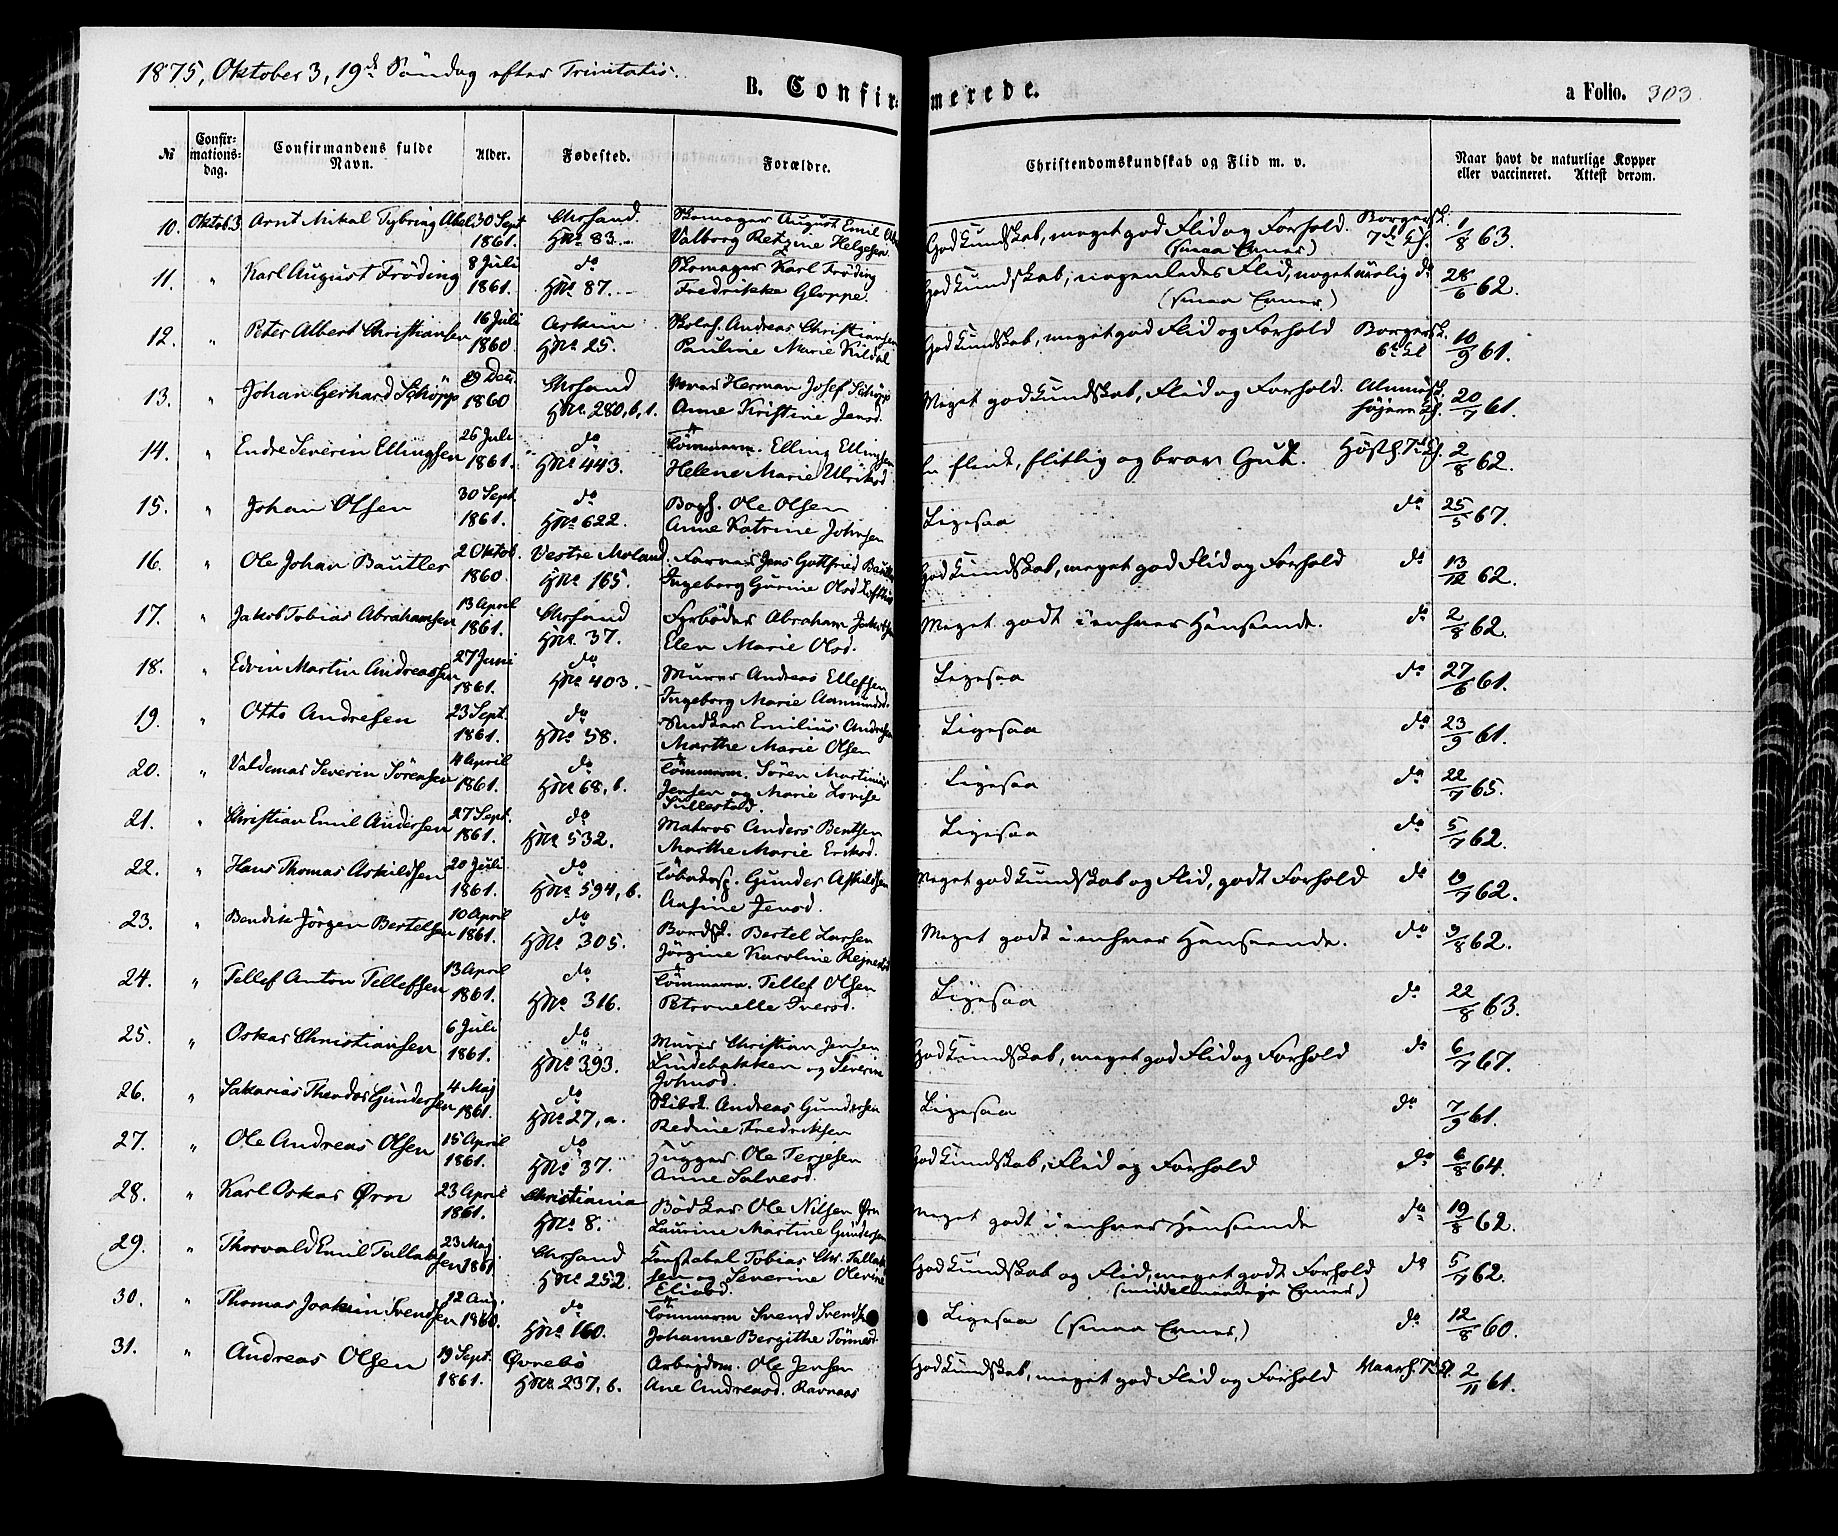 1875, Oktober 3, 19de Söndag efter Trinitatis.
B. Confirmerede.
a Folio. 303.
№ Confirmations-dag. Confirmandens fulde Navn. Alder. Fødested. Forældre. Christendomskundskab og Flid m. v. Naar havt de naturlige Kopper eller vaccineret. Attest derom.
10. Oktob. 3 Arnt Mikal Tybring Abel 30 Sept Chrsand. Skomager August Emil God Kundskab, meget god Flid og Forhold. Borgersk. 1/8 63.
1861. HNo 83. Valborg Retzine Helgesen (smaa Evner) 7de Kl.
11. " Karl August Fröding 8 Juli do Skomager Karl Fröding God Kundskab, nogenledes Flid, noget urolig do 28/6 62.
1861. HNo 87. Fredrikke Gloppe. (smaa Evner)
12. " Peter Albert Christiansen 16 Juli Andreas Christiansen God Kundskab, meget god Flid og Forhold Borgersk. 10/9 61.
1860 HNo 25. Pauline Marie Kildal 6te Kl
13. " Johan Gerhard Schöpp 29 Dec. Chrsand Herman Josef Schöpp Meget god Kundskab, Flid og Forhold. 20/7 61.
1860 HNo 280, b, 1. Anne Kristine Jensd.
14. " Endre Severin Ellingsen 26 Juli do Tömmerm. Elling Ellingsen En flink, flittig og brav Gut. 2/8 62.
1861. HNo 443. Helene Marie Ulriksd
15. " Johan Olsen 30 Sept. do Ole Olsen Ligesaa do 25/5 67.
1861. HNo 622. Anne Katrine Johnsen
16. " Ole Johan Bautler 2 Oktob. Vestre Moland. Farver Jens Gottfried Bautler God Kundskab, meget god Flid og Forhold do 13/12 62.
1860. HNo 165. Ingeborg Gurine Olsd
17. " Jakob Tobias Abrahamsen 13 April Chrsand Fyrböder Abraham Jakobsen Meget godt i enhver Henseende. do 2/8 62.
1861. HNo 37. Elen Marie Olsd.
18. " Edvin Martin Andreassen 27 Juni do Murer Andreas Ellefsen Ligesaa do 27/6 61.
1861. HNo 403. Ingeborg Marie Aamundsd.
19. " Otto Andresen 23 Sept. do Snedker Emilius Andresen Ligesaa do 23/9 61.
1861. HNo 58. Marthe Marie Olsen
20. " Valdemar Severin Sörensen 4 April do Tömmerm. Sören Martinius Ligesaa do 22/7 65.
1861. HNo 68, b. Jensen og Marie Lovise
Sullestad.
21. " Christian Emil Andersen 27 Sept. do Matros Anders Bentsen Ligesaa do 5/7 62.
1861. HNo 532. Marthe Marie Eriksd.
22. " Hans Thomas Askildsen 20 Juli do Gunder Askildsen Meget god Kundskab og Flid, godt Forhold do 19/7 62.
1861. HNo 594, b. Aasine Jensd.
23. " Bendik Jörgen Bertelsen 10 April do Bertel Larsen Meget godt i enhver Henseende. do 9/8 62.
1861. HNo 305. Jörgine Karoline
24. " Tellef Anton Tellefsen 13 April do Tömmerm. Tellef Olsen Ligesaa do 22/8 63.
1861. HNo 316. Petronelle Iversd.
25. " Oskar Christiansen 6 Juli do Murer Christian Jensen God Kundskab, meget god Flid og Forhold do 6/7 67.
1861. HNo 393. Lindebakken og Severine
Johnsd.
26. " Sakarias Theodor Gundersen 4 Maj do Skibst. Andreas Gundersen Ligesaa do 7/9 61.
1861. HNo 27, a. Redine Fredriksen
27. " Ole Andreas Olsen 15 April do Hugger Ole Terjesen God Kundskab, Flid og Forhold do 6/8 64.
1861. HNo 37. Anne Salvesd.
28. " Karl Oskar Ørn 23 April Christiania Bödker Ole Nilsen Ørn Meget godt i enhver Henseende do 19/8 62.
1861. HNo 8. Laurine Martine Gundersen
29. " Thorvald Emil Tallak- 23 Maj Chrsand Konstabel Tobias Chr. Tallak- God Kundskab og Flid, meget godt Forhold do 5/7 62.
sen 1861 HNo 252. sen og Severine Olevine (middelmaadige Evner)
Eliasd.
30. " Thomas Joakim Svend- 12 Aug. do Tömmerm Svend Svends Ligesaa (smaa Evner) do 12/8 60.
sen 1860. HNo 160. Johanne Bergithe Tönnesd.
31. " Andreas Olsen 19 Sept. Øvrebö Arbejdsm. Ole Jensen God Kundskab, meget god Flid og Forhold 2/11 61.
1861. HNo 237, b. Ane Andreasd. Ravnaas